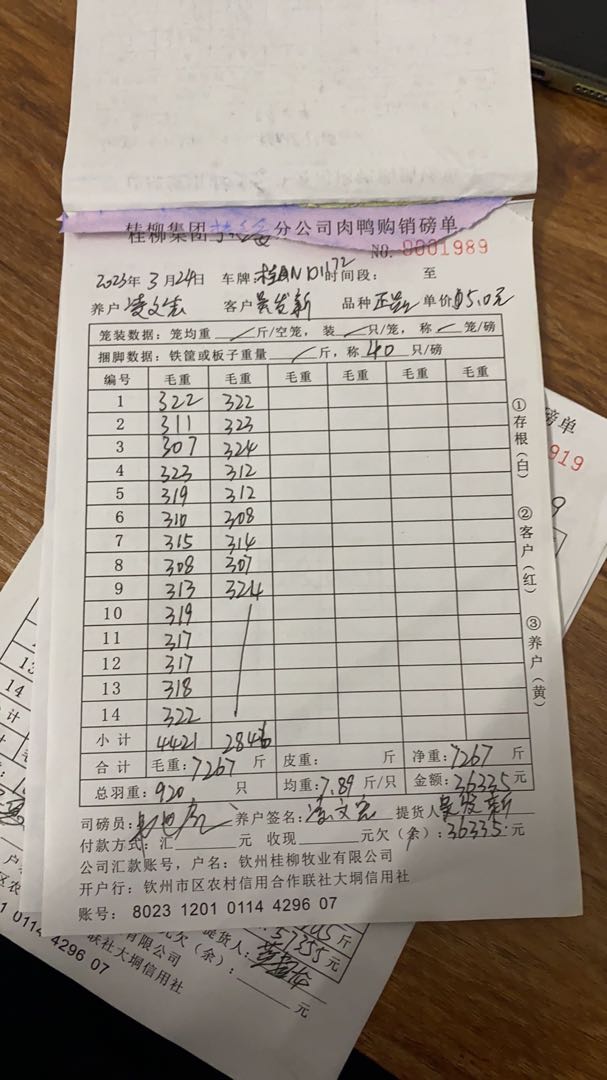 桂柳集团 分公司肉鸭购销磅单
NO. 0001989
2023年 3月24日 车牌:桂AND1172 时间段: 至
养户 凌文宏 客户 吴发新 品种 单价 5.0元
笼装数据: 笼均重 斤/空笼, 装 只/笼, 称 笼/磅
捆脚数据: 铁筐或板子重量 斤, 称 40 只/磅
编号 毛重 毛重 毛重 毛重 毛重 毛重
1 322 322
2 311 323
3 307 324
4 323 312
5 319 312
6 310 308
7 315 314
8 308 307
9 313 324
10 319
11 317
12 317
13 318
14 322
小计 4421 2846
合计 毛重:7267 斤 皮重: 斤 净重:7267 斤
总羽重: 920 只 均重:7.89 斤/只 金额:36335元
司磅员: 养户签名: 凌文宏 提货人 吴发新
付款方式:汇 元 收现 元欠(余):36335元
公司汇款账号, 户名: 钦州桂柳牧业有限公司
开户行: 钦州市区农村信用合作联社大垌信用社
账号: 8023 1201 0114 4296 07
①存根(白)
②客户(红)
③养户(黄)
磅单
919
14
计
斤
51355 元
提货人:
欠(余): 元
有限公司
联社大垌信用社
01 0114 4296 07